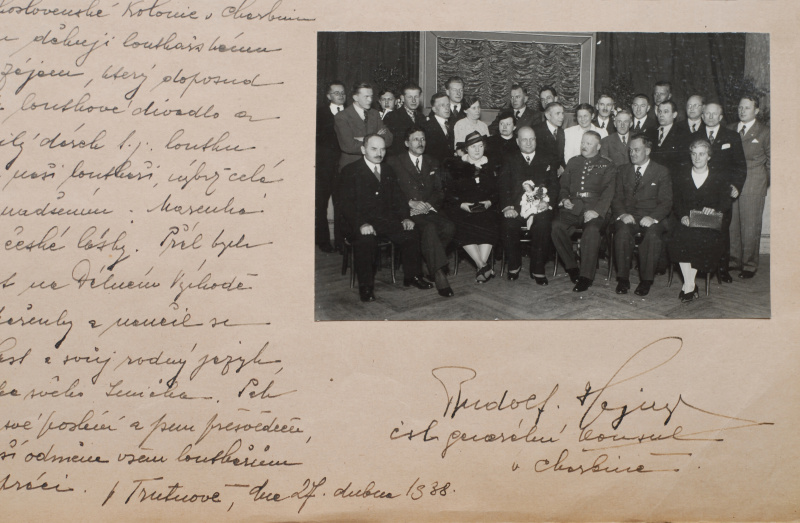 hoslovenské Kolonie v Charbinu
děkuji loutkářskému
zájem, který doposud
loutkové divadlo a
dárek t.j. loutku
naši loutkáři, nýbrž celá
nadšením. Marenka
české lásky. Přál bych
na Dálném Východě
a naučil se
a svůj rodný jazyk,
svého
své poslání a jsem přesvědčen,
ší odměnou všem loutkářům
práci. V Trutnově, dne 27. dubna 1938.
Rudolf Hejny
čsl. generální konsul
v Charbině